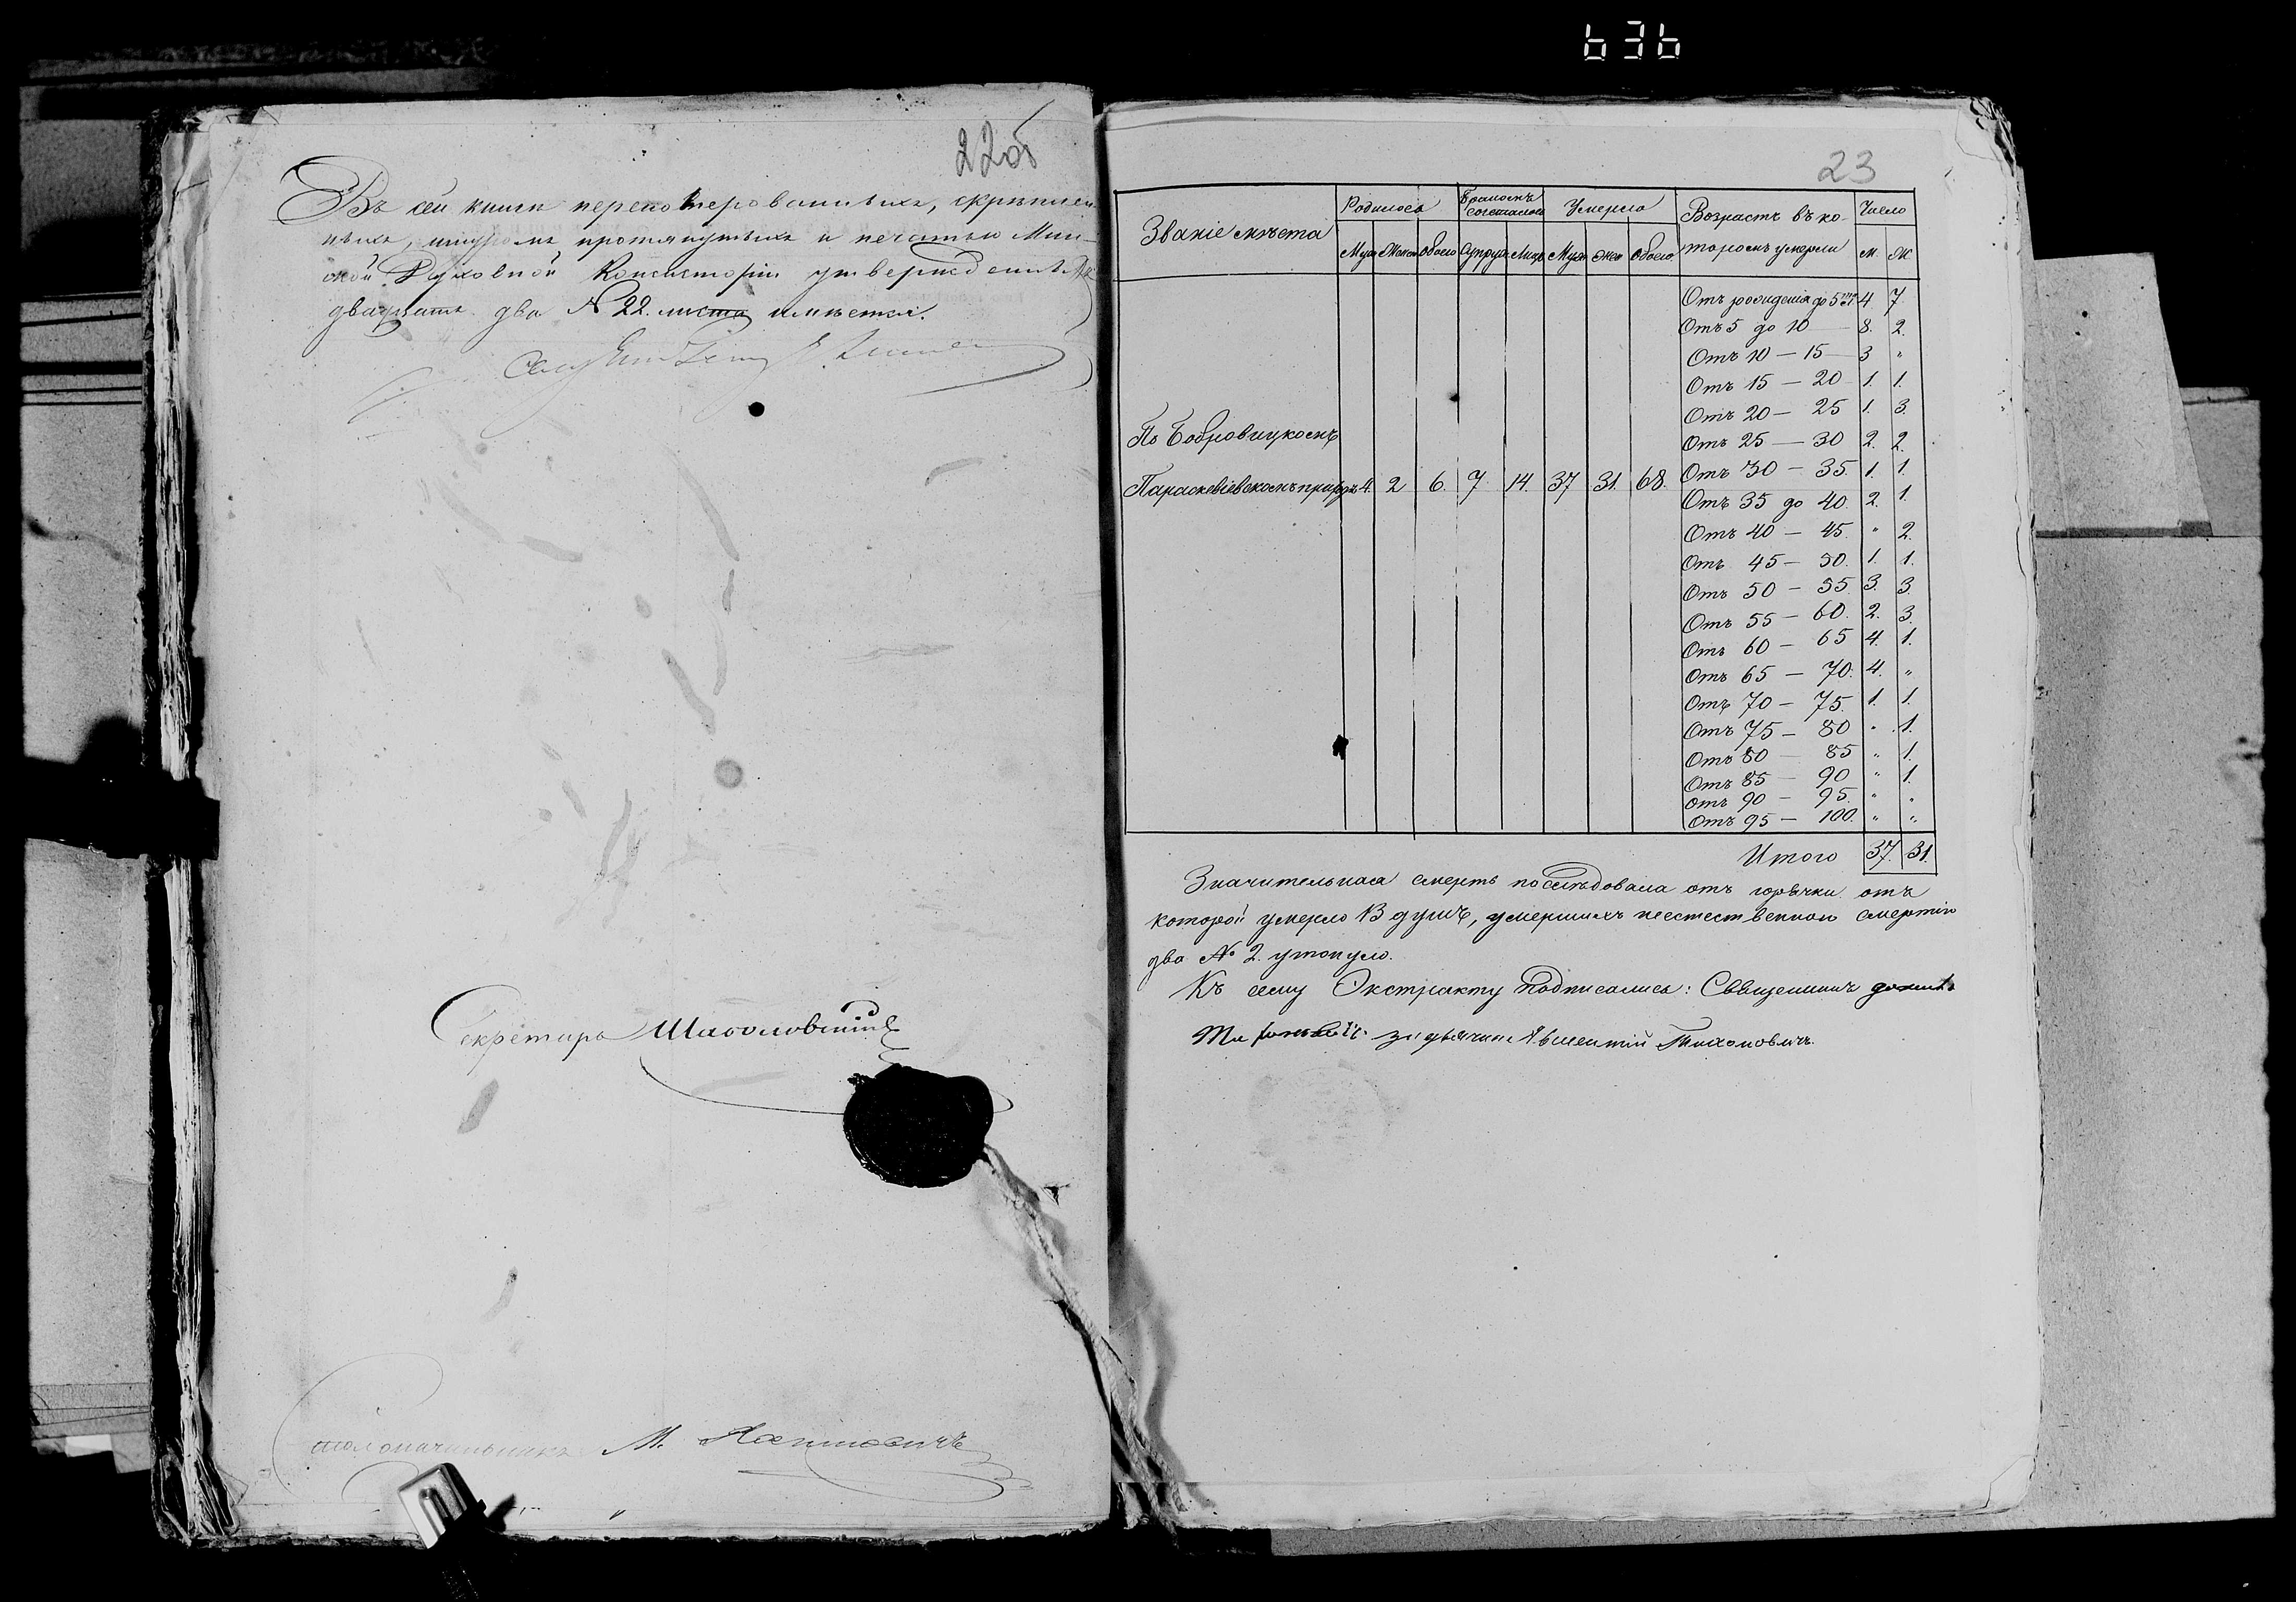 636
22об
Въ сей книги перенотерованныхъ, скрѣплен-
ныхъ, шнуромъ протянутыхъ и печатью Мин-
ской Духовной Консисторіи утвержденныхъ
двадцать два № 22. листа имѣется.
Секретарь
Столоначальникъ М.
23
Званіе мѣста | Родилось | Бракомъ сочеталось | Умерло | Возрастъ въ ко- | Число
Муж | Женс | Обоего | Супруж | Лицъ | Муж | Жен | Обоего | торомъ умерли | М. | Ж
Отъ рожденія до 5 | 4 | 7.
Отъ 5 до 10 | 8. | 2.
Отъ 10 — 15 | 3 | "
Отъ 15 — 20 | 1. | 1.
Отъ 20 — 25 | 1. | 3.
По Бобровицкомъ
Отъ 25 — 30 | 2. | 2.
Параскевіевскомъ приходѣ | 4. | 2 | 6. | 7 | 14. | 37 | 31. | 68. | Отъ 30 — 35. | 1. | 1.
Отъ 35 до 40. | 2. | 1.
Отъ 40 — 45. | " | 2.
Отъ 45 — 50. | 1. | 1.
Отъ 50 — 55. | 3. | 3.
Отъ 55 — 60. | 2. | 3.
Отъ 60 — 65 | 4. | 1.
Отъ 65 — 70. | 4. | "
Отъ 70 — 75. | 1. | 1.
Отъ 75 — 80 | " | 1.
Отъ 80 — 85 | " | 1.
Отъ 85 — 90 | " | 1.
Отъ 90 — 95. | " | "
Отъ 95 — 100. | " | "
Итого | 37. | 31.
Значительная смерть послѣдовала отъ горячки отъ
которой умерло 13 душъ, умершихъ неестественною смертію
два № 2. утонуло.
Къ сему Экстракту подписались: Священникъ
Тихоновичъ.